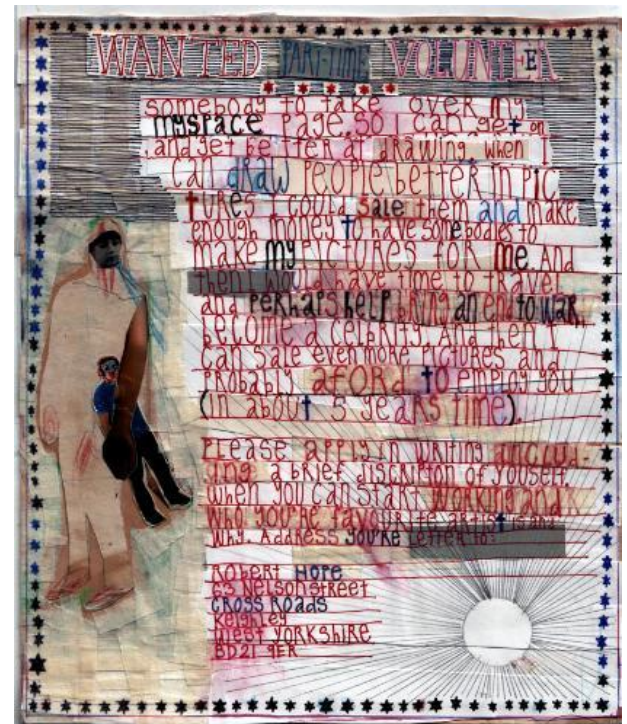 WANTED PART-TIME VOLUNTEER
somebody to take over my
myspace page, so I can get on
and get better at drawing. when I
can draw people better in pic
tures I could sale them and make
enough money to have somebodies to
make my pictures for me. And
then I would have time to travel
and perhaps help bring an end to war,
become a celbrity. And then I
can sale even more pictures and
probably aford to employ you
(in about 5 years time).
Please apply in writing includ-
ing a brief discripton of youself.
when you can start working and
who you're favourite artist is and
why. Address you're letter to:
Robert Hope
63 Nelson street
Cross Roads
Keighley
West Yorkshire
BD21 9ER